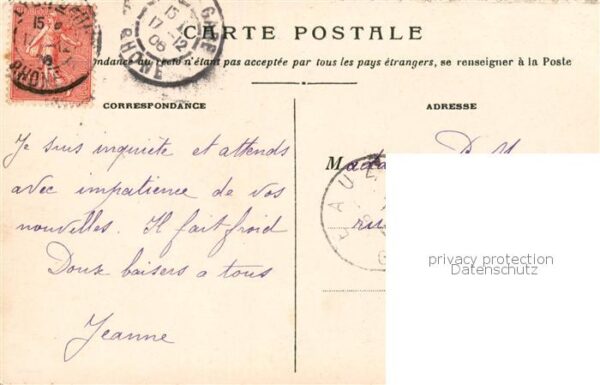 CARTE POSTALE
au recto n'étant pas acceptée par tous les pays étrangers, se renseigner à la Poste
CORRESPONDANCE
ADRESSE
Je suis inquiète et attends
avec impatience de vos
nouvelles. Il fait froid
Doux baisers a tous
Jeanne
15
17-12
06
GARE
RHONE
15
RHONE
privacy protection
Datenschutz